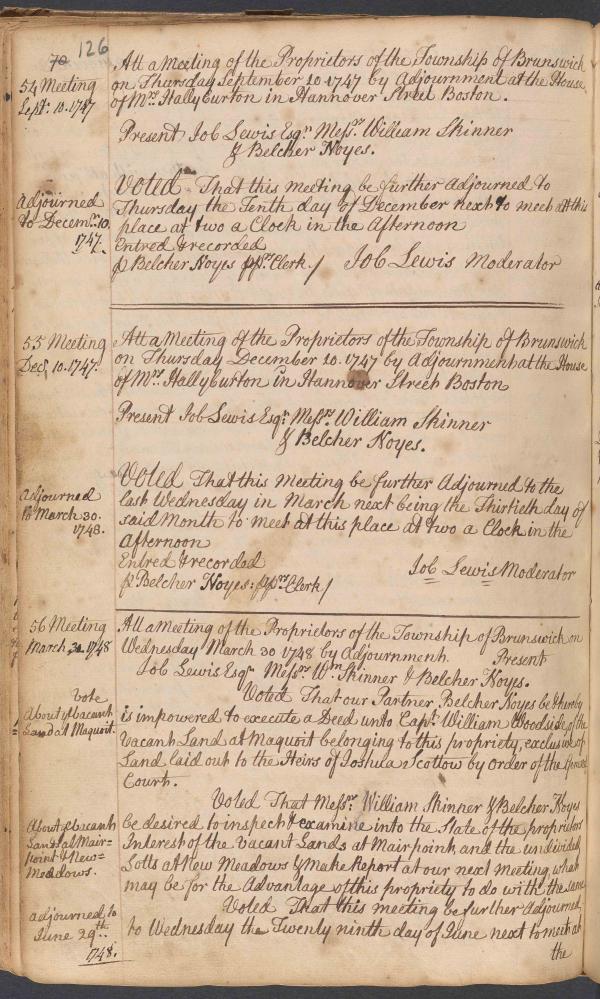 70 126
54 Meeting
Sept: 10. 1747
Att a Meeting of the Proprietors of the Township of Brunswick
on Thursday September 10 1747 by Adjournment at the House
of Mrs. Hallyburton in Hannover Street Boston.
Present Job Lewis Esqr. Messrs. William Skinner
& Belcher Noyes.
Adjourned
to Decemr. 10.
1747.
Voted That this meeting be further Adjourned to
Thursday the Tenth day of December next to meet at this
place at two a Clock in the Afternoon
Entred & recorded
p Belcher Noyes pprs. Clerk / Job Lewis Moderator
55 Meeting
Decr. 10. 1747.
Att a Meeting of the Proprietors of the Township of Brunswick
on Thursday December 10. 1747 by Adjournment at the House
of Mrs. Hallyburton in Hannover Street Boston
Present Job Lewis Esqr. Messrs. William Skinner
& Belcher Noyes.
Adjourned
to March 30.
1748.
Voted That this Meeting be further Adjourned to the
last Wednesday in March next being the Thirtieth day of
said Month to meet at this place at two a Clock in the
Afternoon
Entred & recorded Job Lewis Moderator
p Belcher Noyes: pprs. Clerk /
56 Meeting
March 30 1748
Att a Meeting of the Proprietors of the Township of Brunswick on
Wednesday March 30 1748 by Adjournment. Present
Job Lewis Esqr. Messrs. Wm. Skinner & Belcher Noyes.
Vote
About ye vacant
Land at Maquoit.
Voted That our Partner Belcher Noyes be & hereby
is impowered to execute a Deed unto Capt. William Woodside of the
vacant Land at Maquoit belonging to this propriety, exclusive of
Land laid out to the Heirs of Joshua Scottow by Order of the General
Court.
About ye vacant
Land at Mair=
point & New=
Meddows.
Voted That Messrs. William Skinner & Belcher Noyes
be desired to inspect & examine into the State of the proprietors
Interest of the vacant Lands at Mair point, and the undivided
Lotts at New Meadows & Make Report at our next Meeting, what
may be for the Advantage of this propriety to do with the same
adjourned to
June 29th.
1748.
Voted That this meeting be further Adjourned
to Wednesday the Twenty ninth day of June next to meet at
the